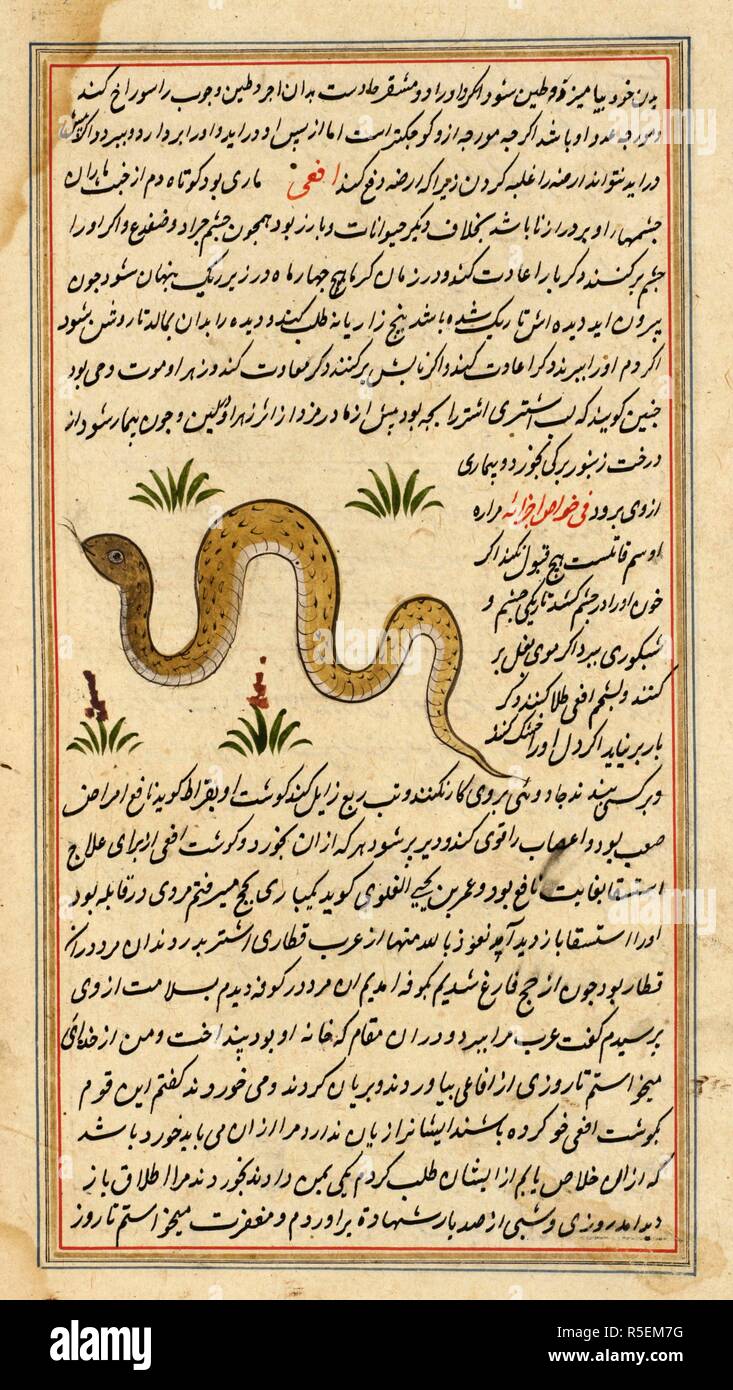 بدن خود بیامیزد و طین شود اکر و او را دو مشقر حادست بدان اجر و طین و جوب را سوراخ کند
و مورجه عدو او باشد اکرجه مورجه ازو کوجکتر است اما از پس او در اید و او را بردارد و ببرد و اکر از پیش
در اید نتواند ارضه را غلبه کردن زیرا که ارضه دفع کند افعی ماری بود کوتاه دم از خبث ماران
جشمهاء او بر درازنا باشد بخلاف دیکر حیوانات و بارز بود همجون جشم جراد و ضفدع و اکر او را
جشم برکنند دکر بار اعادت کند و در زمان کرما هیج جهار ماه در زیر زمین بنهان شود جون
بیرون اید دیده اش تاریک شده باشد بیخ رازیانه طلب کند و دیده را بدان بمالد تا روشن شود
اکر دم او را ببرند دکر اعادت کند و اکر نابش برکنند دکر معاودت کند و زهر او موت وحی بود
جنین کویند که لب اشتری اشتر را بجه بود بیش از مادر مرد از اثر زهر او و جون بیمار شود از
درخت زیتون برکی بخورد و بیماری
ازوی برود فی خواص اجزائه مراره
او سم قاتلست هیج قبول نکند اکر
خون او را در جشم کشد تاریکی جشم و
شبکوری ببرد اکر موی بغل بر
کنند و بشحم افعی طلا کنند دکر
بار بر نیاید اکر دل او را خشک کنند
و بر کسی بندند جادوئی بروی کار نکنند و تب ربع زایل کند کوشت او بقراط کوید نافع امراض
صعب بود و اعصاب را قوی کند و دیر بیر شود هر که از ان بخورد و کوشت افعی از برای علاج
استسقا بغایت نافع بود و عمر بن یحیی العلوی کوید یکباری بحج میرفتم مردی در قافله بود
او را استسقا بازدید آمد نعوذ بالله منها از عرب قطاری اشتر بدزدیدند ان مرد در ان
قطار بود جون از حج فارغ شدیم بکوفه امدیم ان مرد در کوفه دیدم بسلامت ازوی
برسیدم کفت عرب مرا ببرد و در ان مقام که خانه او بود بینداخت و من از خدای
میخواستم تا روزی از افاعی بیاوردند و بریان کردند و می خوردند کفتم این قوم
بکوشت افعی خو کرده باشند ایشانرا زیان ندارد مرا از ان می باید خورد باشد
که از ان خلاص یابم از ایشان طلب کردم یکی بمن دادند بخوردند مرا اطلاق باز
دید امد روزی و شبی از صد بار شهادة براوردم و مغفرت میخواستم تا روز
alamy
alamy
Image ID: R5EM7G
www.alamy.com